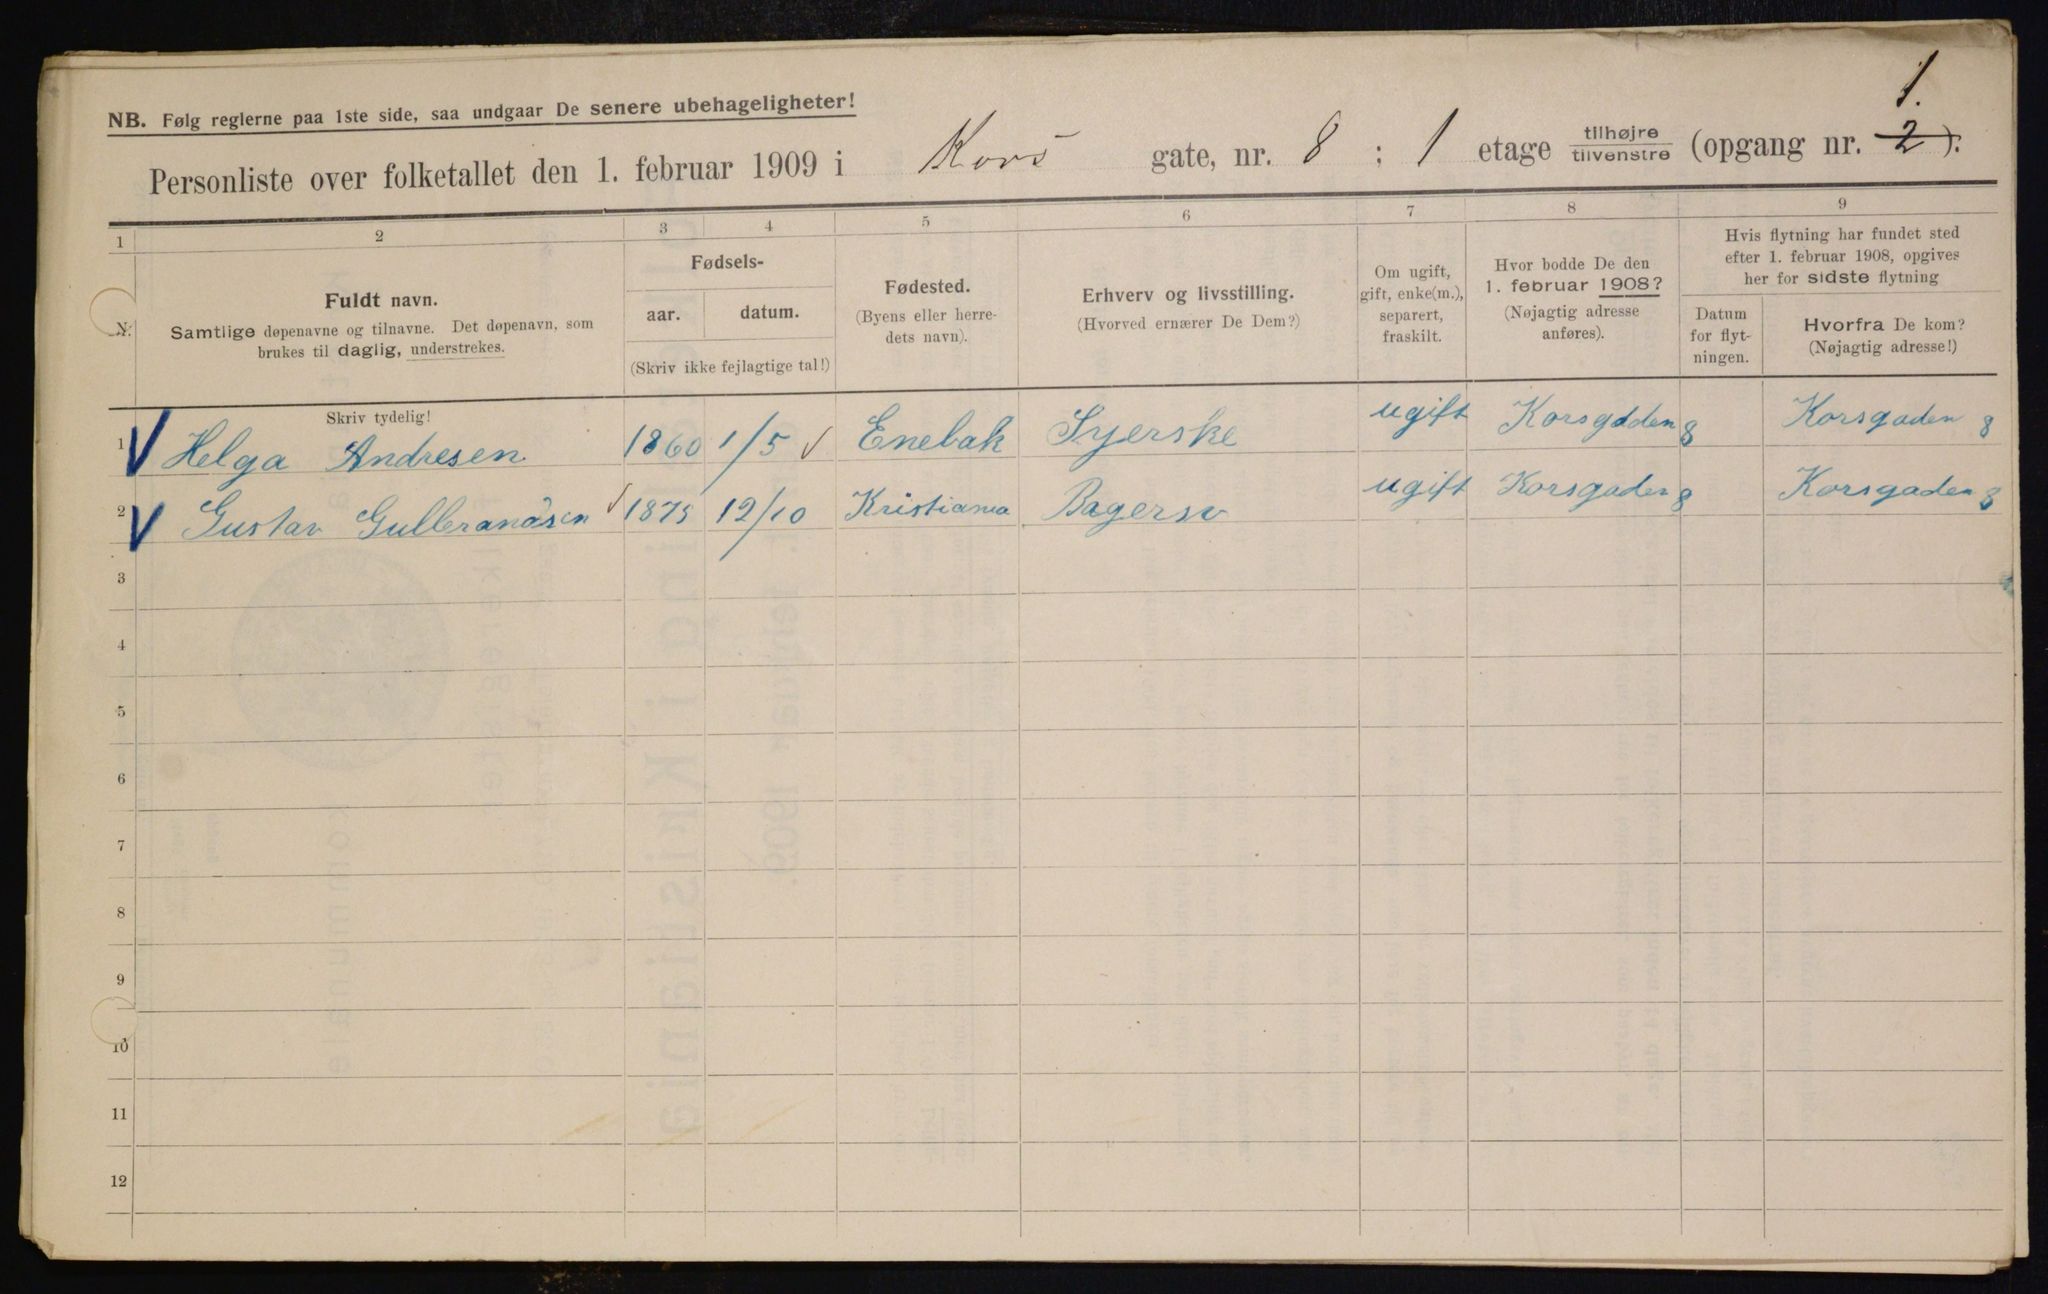 NB. Følg reglerne paa 1ste side, saa undgaar De senere ubehageligheter!
1.
Personliste over folketallet den 1. februar 1909 i Kors gate, nr. 8 ; 1 etage tilhøjre / tilvenstre (opgang nr. 2).
1 2 3 4 5 6 7 8 9
N.
Fuldt navn.
Samtlige døpenavne og tilnavne. Det døpenavn, som
brukes til daglig, understrekes.
Skriv tydelig!
Fødsels-
aar. datum.
(Skriv ikke fejlagtige tal!)
Fødested.
(Byens eller herre-
dets navn).
Erhverv og livsstilling.
(Hvorved ernærer De Dem?)
Om ugift,
gift, enke(m.),
separert,
fraskilt.
Hvor bodde De den
1. februar 1908?
(Nøjagtig adresse
anføres).
Hvis flytning har fundet sted
efter 1. februar 1908, opgives
her for sidste flytning
Datum
for flyt-
ningen.
Hvorfra De kom?
(Nøjagtig adresse!)
1 Helga Andresen 1860 1/5 Enebak Syerske ugift Korsgaden 8 Korsgaden 8
2 Gustav Gulbrandsen 1875 12/10 Kristiania Bagersv ugift Korsgaden 8 Korsgaden 8
3
4
5
6
7
8
9
10
11
12